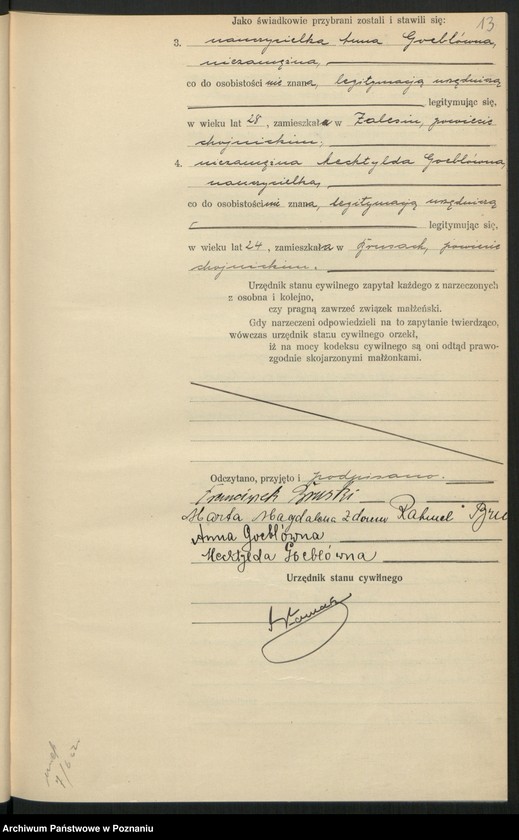 Jako świadkowie przybrani zostali i stawili się:
13
3. nauczycielka Anna Goebłówna,
niezamężna,
co do osobistości nie znana, legitymacją urzędniczą
legitymując się,
w wieku lat 28, zamieszkała w Zalesiu, powiecie
chojnickim,
4. niezamężna Mechtylda Goebłówna,
nauczycielka,
co do osobistości nie znana, legitymacją urzędniczą
legitymując się,
w wieku lat 24, zamieszkała w Brusach, powiecie
chojnickim.
Urzędnik stanu cywilnego zapytał każdego z narzeczonych
z osobna i kolejno,
czy pragną zawrzeć związek małżeński.
Gdy narzeczeni odpowiedzieli na to zapytanie twierdząco,
wówczas urzędnik stanu cywilnego orzekł,
iż na mocy kodeksu cywilnego są oni odtąd prawo-
zgodnie skojarzonymi małżonkami.
Odczytano, przyjęto i podpisano.
Franciszek
Marta Magdalena z domu Rahmel
Anna Goebłówna
Mechtylda Goebłówna
Urzędnik stanu cywilnego
Archiwum Państwowe w Poznaniu